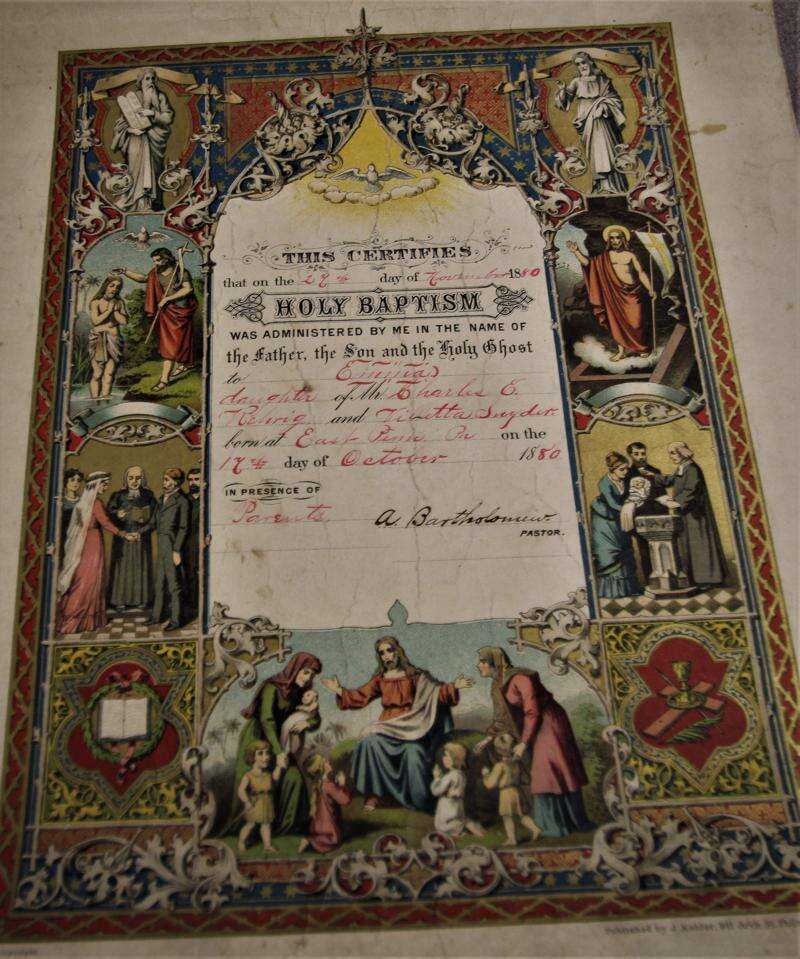 THIS CERTIFIES
that on the 27th day of November 1880
HOLY BAPTISM
WAS ADMINISTERED BY ME IN THE NAME OF
the Father, the Son and the Holy Ghost
to
daughter of Mr Charles E.
and Snyder
born at East Penn Pa on the
17th day of October 1880
IN PRESENCE OF
Parents. A. Bartholomew.
PASTOR.
Published by J. Kohler, 911 Arch St. Phila